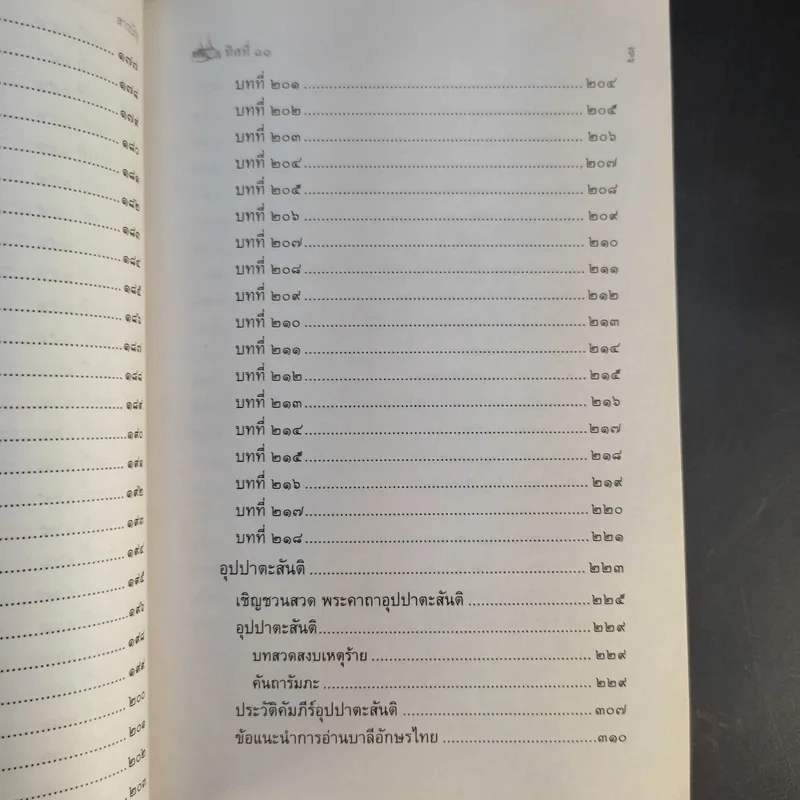 สารบัญ
๑๗๗
๑๗๘
๑๗๙
๑๘๐
๑๘๑
๑๘๒
๑๘๓
๑๘๔
๑๘๕
๑๘๖
๑๘๗
๑๘๘
๑๘๙
๑๙๐
๑๙๑
๑๙๒
๑๙๓
๑๙๔
๑๙๕
๑๙๖
๑๙๘
๑๙๙
๒๐๐
๒๐๑
๒๐๒
๒๐๓
ทิศที่ ๑๑
ฐ
บทที่ ๒๐๑ ๒๐๔
บทที่ ๒๐๒ ๒๐๕
บทที่ ๒๐๓ ๒๐๖
บทที่ ๒๐๔ ๒๐๗
บทที่ ๒๐๕ ๒๐๘
บทที่ ๒๐๖ ๒๐๙
บทที่ ๒๐๗ ๒๑๐
บทที่ ๒๐๘ ๒๑๑
บทที่ ๒๐๙ ๒๑๒
บทที่ ๒๑๐ ๒๑๓
บทที่ ๒๑๑ ๒๑๔
บทที่ ๒๑๒ ๒๑๕
บทที่ ๒๑๓ ๒๑๖
บทที่ ๒๑๔ ๒๑๗
บทที่ ๒๑๕ ๒๑๘
บทที่ ๒๑๖ ๒๑๙
บทที่ ๒๑๗ ๒๒๐
บทที่ ๒๑๘ ๒๒๑
อุปปาตะสันติ ๒๒๓
เชิญชวนสวด พระคาถาอุปปาตะสันติ ๒๒๕
อุปปาตะสันติ ๒๒๙
บทสวดสงบเหตุร้าย ๒๒๙
คันถารัมภะ ๒๒๙
ประวัติคัมภีร์อุปปาตะสันติ ๓๐๗
ข้อแนะนำการอ่านบาลีอักษรไทย ๓๑๐